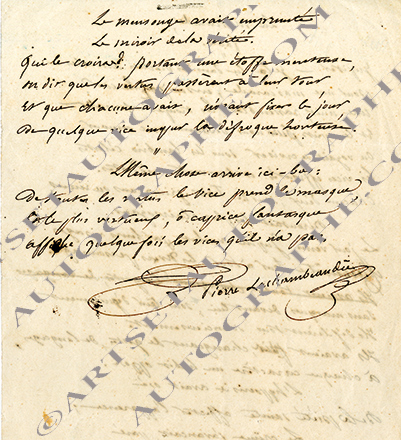 Le mensonge avait emprunté
Le miroir de la vérité.
Qui le croira? portant une étoffe menteuse,
On dit que les vertus passèrent à leur tour
Et que chacune avait, avant finir le jour
De quelque vice impur la défroque honteuse.
"
Même chose arrive ici-bas:
De toutes les vertus le vice prend le masque,
Et le plus vertueux, ô caprice fantasque
affiche quelque fois les vices qu'il n'a pas.
Pierre Lachambeaudie
©ARTSENAUTOGRAPHIE.COM